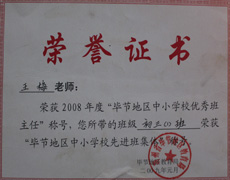 荣誉证书
王梅 老师:
荣获2008年度“毕节地区中小学校优秀班
主任”称号，您所带的班级 初三(1)班 荣获
“毕节地区中小学校先进班集体”
毕节地区教育局
二〇〇九年元月